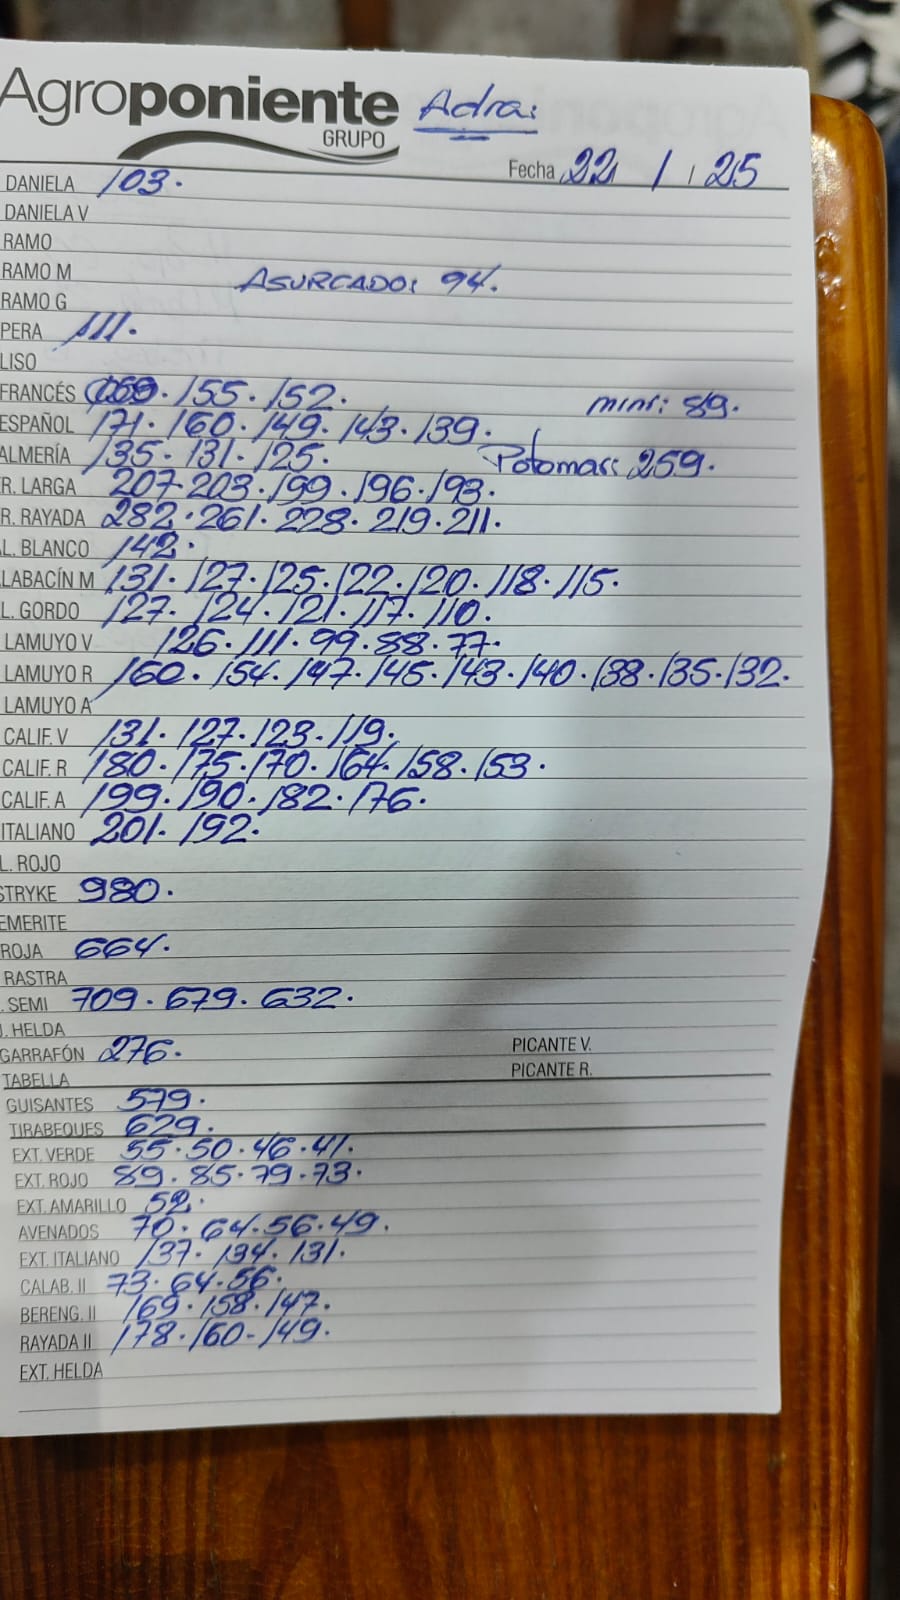 Agroponiente Adra:
GRUPO
Fecha 22 / / 25
DANIELA 103.
DANIELA V
RAMO
RAMO M
ASURCADO: 94.
RAMO G
PERA 111.
LISO
FRANCÉS 155. 152.
mini: 89.
ESPAÑOL 171. 160. 149. 143. 139.
ALMERÍA 135. 131. 125.
Potomac: 259.
R. LARGA 207. 203. 199. 196. 193.
R. RAYADA 282. 261. 228. 219. 211.
L. BLANCO 142.
LABACÍN M 131. 127. 125. 122. 120. 118. 115.
L. GORDO 127. 124. 121. 117. 110.
LAMUYO V 126. 111. 99. 88. 77.
LAMUYO R 160. 154. 147. 145. 143. 140. 138. 135. 132.
LAMUYO A
CALIF. V 131. 127. 123. 119.
CALIF. R 180. 175. 170. 164. 158. 153.
CALIF. A 199. 190. 182. 176.
ITALIANO 201. 192.
L. ROJO
STRYKE 980.
EMERITE
ROJA 664.
RASTRA
. SEMI 709. 679. 632.
. HELDA
GARRAFÓN 276.
PICANTE V.
TABELLA
PICANTE R.
GUISANTES 579.
TIRABEQUES 629.
EXT. VERDE 55. 50. 46. 41.
EXT. ROJO 89. 85. 79. 73.
EXT. AMARILLO 52.
AVENADOS 70. 64. 56. 49.
EXT. ITALIANO 137. 134. 131.
CALAB. II 73. 64. 56.
BERENG. II 169. 158. 147.
RAYADA II 178. 160- 149.
EXT. HELDA